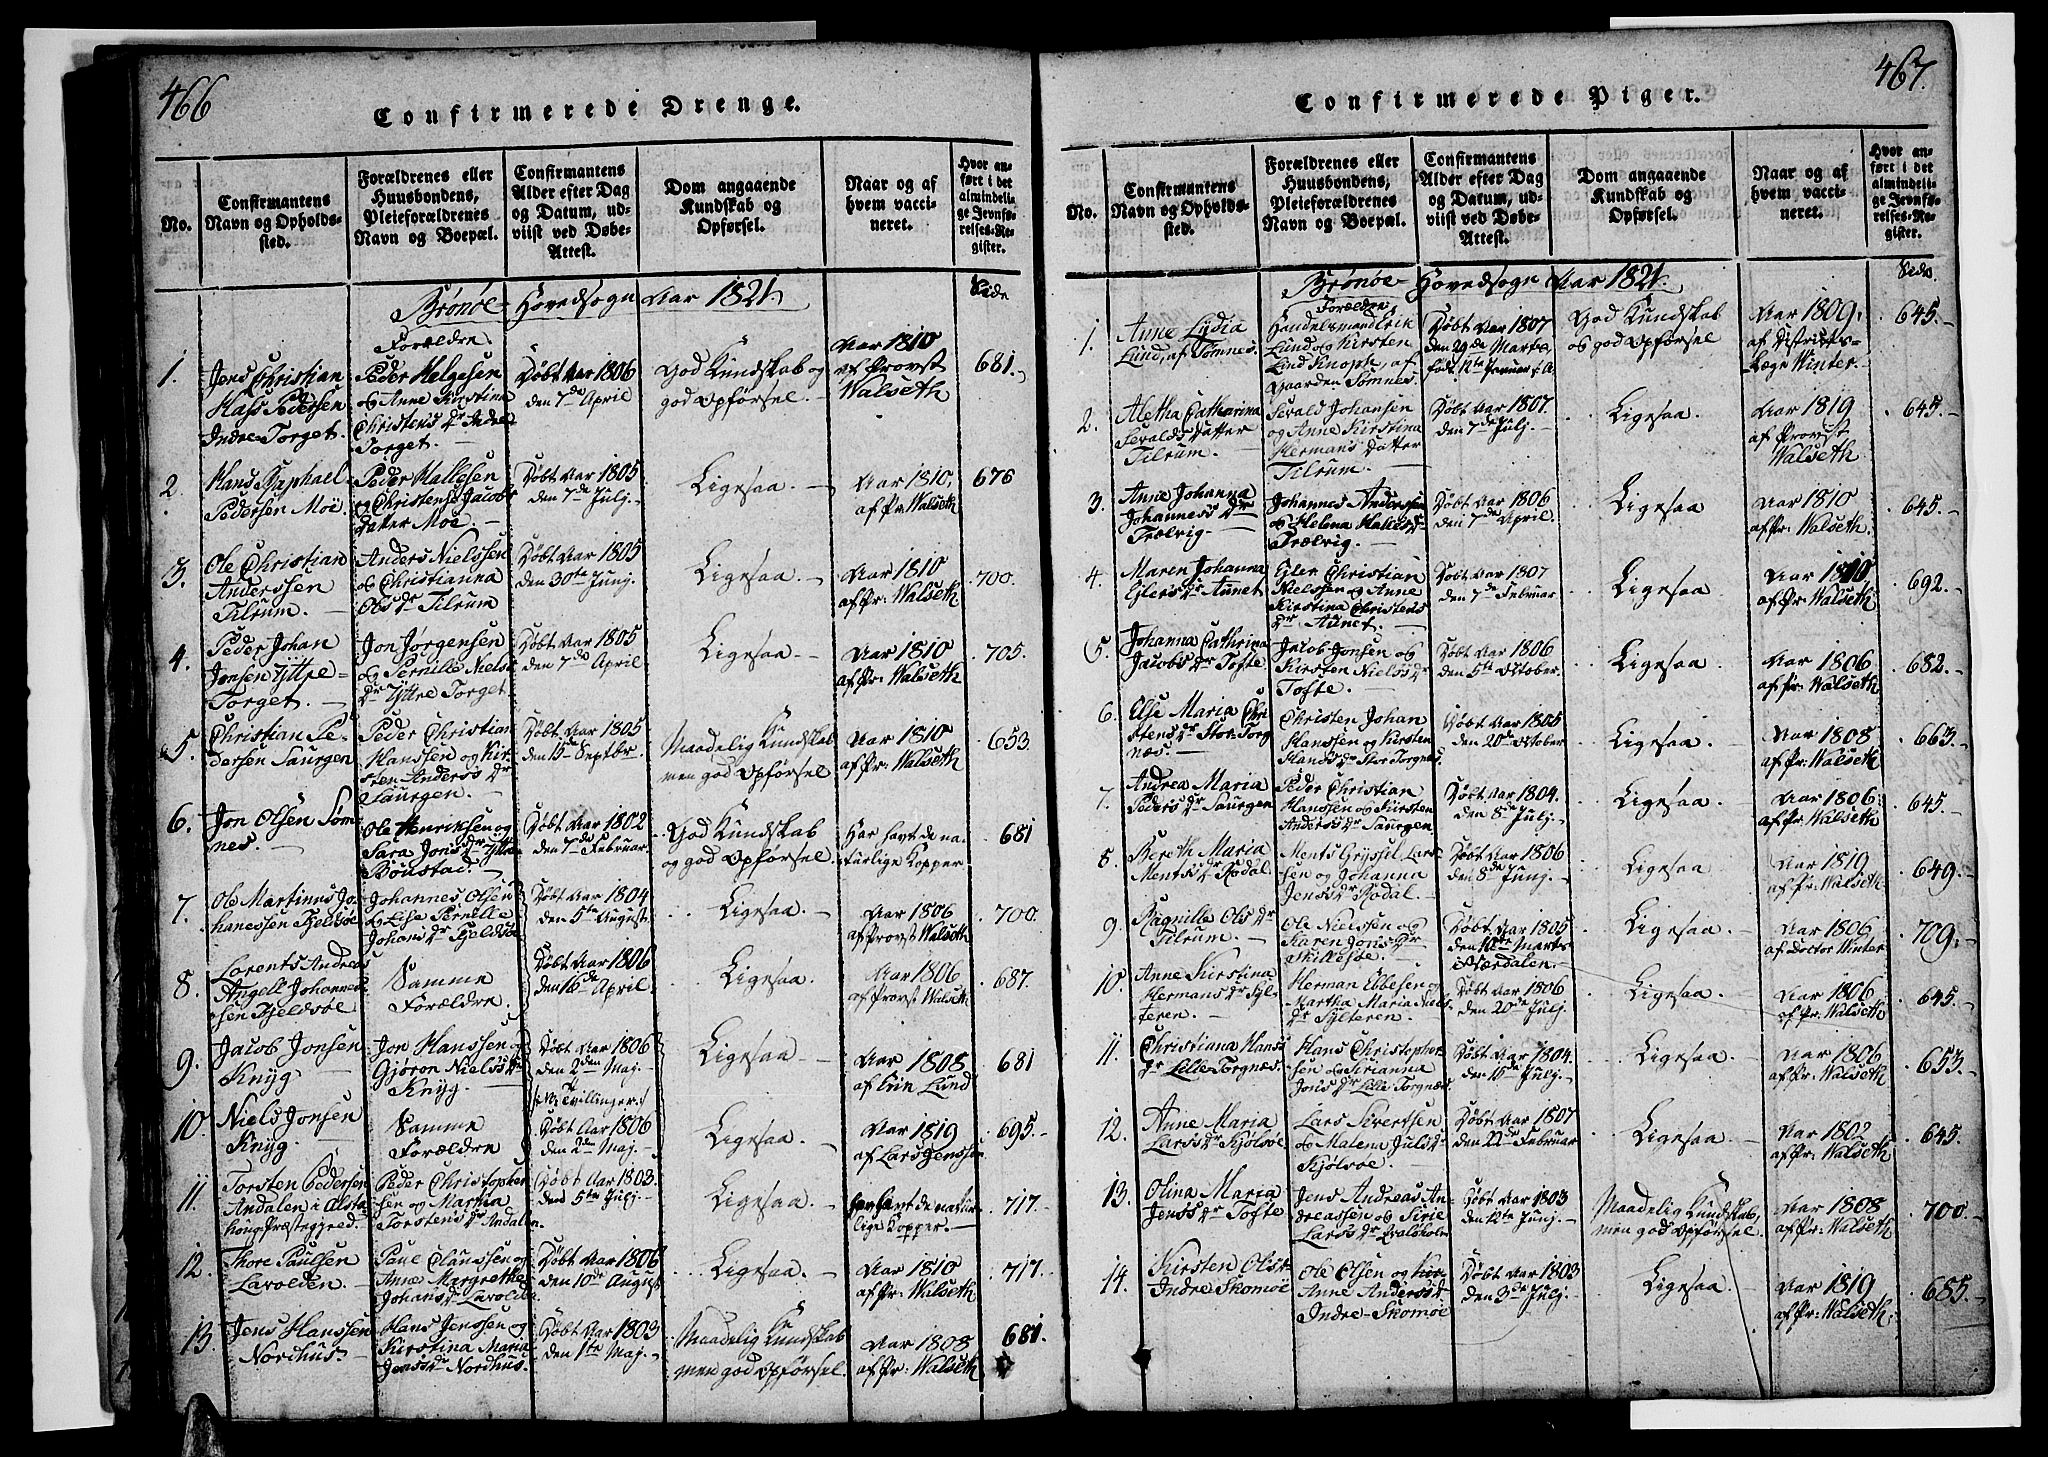 466
Confirmerede Drenge.
No.
Confirmantens
Navn og Opholds-
sted.
Forældrenes eller
Huusbondens,
Pleieforældrenes
Navn og Boepæl.
Confirmantens
Alder efter Dag
og Datum, ud-
viist ved Døbe-
Attest.
Dom angaaende
Kundskab og
Opførsel.
Naar og af
hvem vacci-
neret.
Hvor an-
ført i det
almindeli-
ge Jevnfø-
relses-Re-
gister.
Brönöe Hovedsogn Aar 1821.
Side
Forældre
1.
Jens Christian
Hass Pedersen
Indre-Torget.
Peder Helgesen
og Anne Kirstine
Christens Dr Indre
Torget.
Döbt Aar 1806
den 7de April
God Kündskab og
god Opförsel.
Aar 1810
af Provst
Walseth
681.
2.
Hans Raphael
Pedersen Moe
Peder Hallesen
og Christense Jacobs
datter Moe.
Döbt Aar 1805
den 7de Julj.
Ligesaa.
Aar 1810,
af Pr: Walseth
676
3.
Ole Christian
Anderssen
Tilrum.
Anders Nielssen
og Christianna
Obs dr Tilrum
Döbt Aar 1805
den 30te Junj.
Ligesaa.
Aar 1810
af Pr: Walseth
700.
4.
Peder Johan
Jonsen Yttre-
Torget.
Jon Jörgensen
og Pernille Niels
dr Yttre Torget.
Döbt Aar 1805
den 7de April
Ligesaa.
Aar 1810
af Pr: Walseth
705.
5.
Christian Pe-
dersen Saurgen
Peder Christian
Hanssen og Kir-
sten Anders dr
Saurgen.
Döbt Aar 1805
den 15de Septbr
Maadelig Kündskab
men god Opförsel
Aar 1810
af Pr: Walseth
653
6.
Jon Olsen Söm-
nes.
Ole Henriksen og
Sara Jons dr Yttre
Bonstad.
Döbt Aar 1802
den 7de Februar.
God Kündskab
og god Opförsel.
Har havt de na-
turlige Kopper
681
7.
Ole Martinus Jo-
hanessen Tjeldsöe
Johannes Olsen
og Lise Pernille
Johans dr Tjeldsöe
Döbt Aar 1804
den 5te August.
Ligesaa.
Aar 1806
af Provst Walseth
700.
8.
Lorents Andreas
Angell Johannes-
sen Tjeldsöe
Samme
Forældre.
Döbt Aar 1806
den 16de April.
Ligesaa.
Aar 1806
af Provst Walseth
687.
9.
Jacob Jonsen
Knyg
Jon Hanssen og
Gjöron Niels dr
Knyg.
Döbt Aar 1806
den 2den Maj.
Tvillinger.
Ligesaa
Aar 1808
af Erik Lund
681
10.
Niels Jonsen
Knyg.
Samme
Forældre
Döbt Aar 1806
den 2den Maj.
Ligesaa.
Aar 1819
af Lars Jenssen
695.
11.
Torsten Pedersen
Andalen i Alsta-
houg Præstegjeld.
Peder Christopher-
sen og Martha
Torstens dr Andalen.
Döbt Aar 1803.
den 5te Julj.
Ligesaa.
har havt de natur-
lige Kopper.
717.
12.
Thore Paulsen
Lavolden
Paul Claussen og
Anne Margrethe
Johans dr Lavolden
Döbt Aar 1806
den 10de August
Ligesaa.
Aar 1810
af Pr: Walseth
717.
13.
Jens Hanssen
Nordhus.
Hans Jenssen og
Kirstina Maria
Jens dr Nordhus.
Döbt Aar 1803.
den 1te Maj.
Maadelig Kündskab
men god Opförsel.
Aar 1808
af Pr: Walseth
681.
467.
Confirmerede Piger.
No.
Confirmantens
Navn og Opholds-
sted.
Forældrenes eller
Huusbondens,
Pleieforældrenes
Navn og Boepæl.
Confirmantens
Alder efter Dag
og Datum, ud-
viist ved Døbe-
Attest.
Dom angaaende
Kundskab og
Opførsel.
Naar og af
hvem vacci-
neret.
Hvor an-
ført i det
almindeli-
ge Jevnfø-
relses-Re-
gister.
Brönöe Hovedsogn Aar 1821.
Side
Forældre
1.
Anne Lydia
Lund, af Sömnes.
Handelsmand Erik
Lund og Kirsten
Lind Knoph, af
Gaarden Sömnes.
Döbt Aar 1807
den 29de Marts,
föde 12te Januar
God Kündskab
og god Opförsel
Aar 1809.
af Districts-
Læge Winter.
645.
2.
Aletha Catharina
Sevalds Datter
Tilrum.
Sevald Johansen
og Anne Kirstina
Hermans Datter
Tilrum.
Döbt Aar 1807.
den 7de Julj.
Ligesaa.
Aar 1819
af Provst
Walseth
645.
3.
Anne Johanna
Johanness dr
Trælvig
Johannes Anderssen
og Helena Halles dr
Trælvig.
Döbt Aar 1806
den 7de April.
Ligesaa
Aar 1810
af Pr: Walseth
645.
4.
Maren Johanna
Ejlers dr Aunet
Ejler Christian
Nielssen og Anne
Kirstina Christens
dr Aunet.
Döbt Aar 1807
den 7de Februar
Ligesaa.
Aar 1810
af Pr: Walseth
692.
5.
Johanna Cathrina
Jacobs dr Tofte
Jacob Jonsen og
Kirsten Niels dr
Tofte.
Döbt Aar 1806
den 5te October.
Ligesaa.
Aar 1806
af Pr: Walseth
682.
6.
Else Maria Chri-
stens dr Stor-Torg-
nes.
Christen Johan
Hanssen og Kirsten
Hans dr Stor Torgnes.
Döbt Aar 1805
den 20de October
Ligesaa.
Aar 1808
af Pr: Walseth
663.
7.
Andrea Maria
Peders dr Saurgen
Peder Christian
Hanssen og Kirsten
Anders dr Saurgen
Döbt Aar 1804.
den 8de Julj.
Ligesaa.
Aar 1806.
af Pr: Walseth
645.
8.
Bereth Maria
Ments dr Rodal
Ments Gryssel Lars-
sen og Johanna
Jens dr Rodal.
Döbt Aar 1806
den 8de Junj.
Ligesaa.
Aar 1819
af Pr: Walseth
649.
9.
Ragnille Ols dr
Tilrum.
Ole Nielssen og
Karen Jons dr
Skillesöe.
Döbt Aar 1805
den Marts
Stördalen.
Ligesaa.
Aar 1806
af Doctor Winter
709.
10.
Anne Kirstina
Hermans dr Syl-
teren.
Herman Ebbesen og
Martha Maria Niels
dr Sylteren.
Döbt Aar 1806
den 20de Julj.
Ligesaa.
Aar 1806
af Pr: Walseth
645.
11.
Christiana Hans
dr Lille Torgnes.
Hans Christopher-
sen og Sirianna
Jons dr Lille Torgnes.
Döbt Aar 1804.
den 15de Julj.
Ligesaa.
Aar 1806
af Pr: Walseth
653.
12.
Anne Maria
Lars dr Kjölsöe
Lars Sivertsen
og Malena Juls dr
Kjölsöe.
Döbt Aar 1807
den 22de Februar
Ligesaa.
Aar 1802
af Pr: Walseth
645.
13.
Olina Maria
Jens dr Tofte
Jens Andreas An-
dreassen og Sirie
Lars dr Qvalsholm
Döbt Aar 1803
den 12te Junj.
Maadelig Kündskab,
men god Opförsel.
Aar 1808
af Pr: Walseth.
700.
14.
Kirsten Ols dr
Indre Skomoe
Ole Olsen og
Anne Anders dr
Indre-Skomoe
Döbt Aar 1803
den 3de Julj.
Ligesaa.
Aar 1819
af Pr: Walseth.
685.